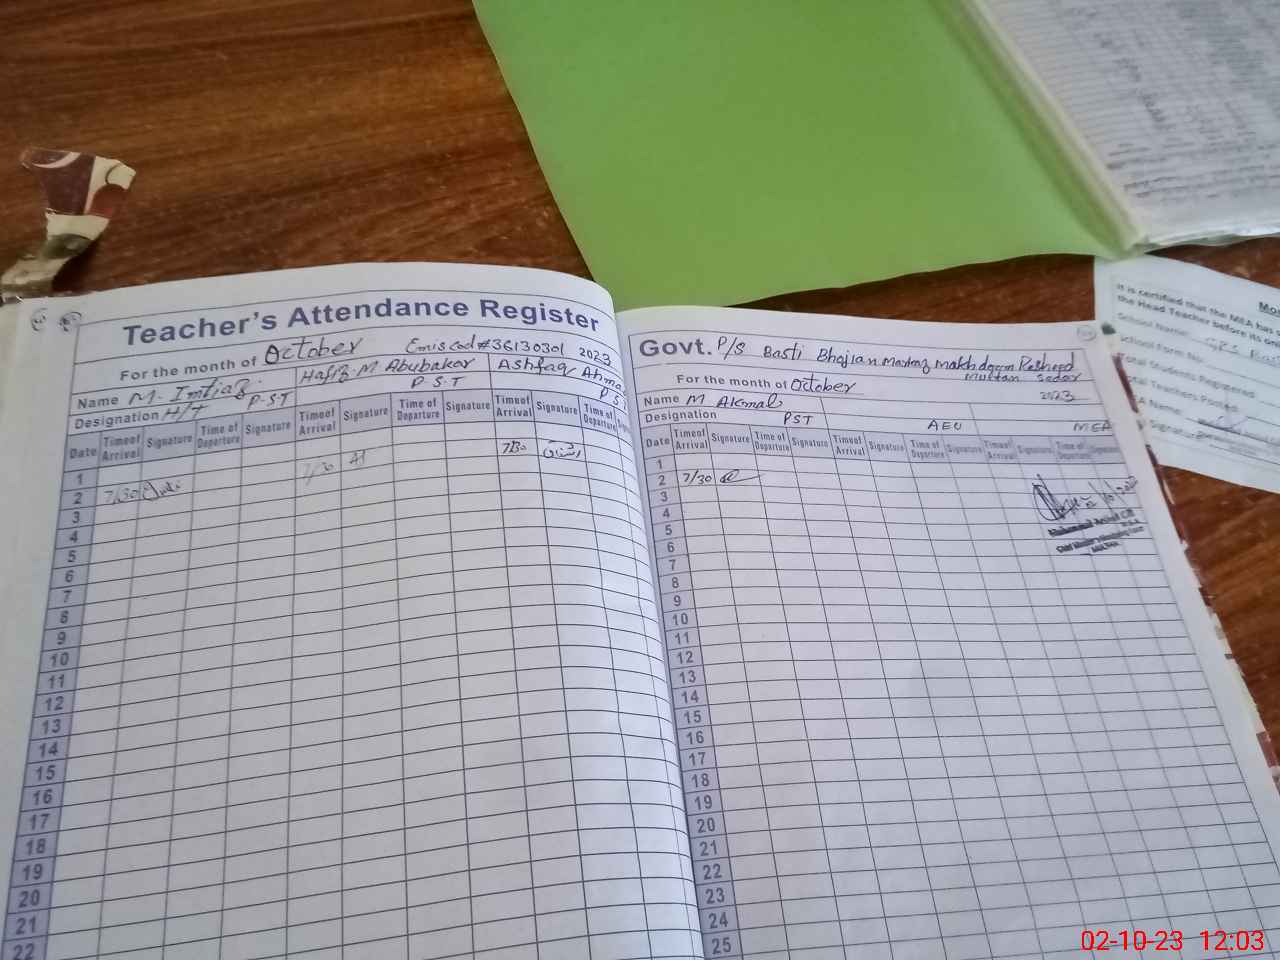 Teacher's Attendance Register
For the month of October Emis Cod # 36130301 2023
Name M. Imtiaz Hafiz M Abubakar Ashfaq Ahma
Designation H/T P-S-T P-S-T P S
Date Time of Arrival Signature Time of Departure Signature Time of Arrival Signature Time of Departure Signature Time of Arrival Signature Time of Departure
1
2 7/30 7/30 7/30 اشفاق
3
4
5
6
7
8
9
10
11
12
13
14
15
16
17
18
19
20
21
22
Govt. P/S Basti Bhajian Markaz makhdoom Rasheed
Multan Sadar
For the month of October 2023
Name M Akmal
Designation PST AEO MEA
Date Time of Arrival Signature Time of Departure Signature Time of Arrival Signature Time of Departure Signature Time of Arrival Signature Time of Departure Signature
1
2 7/30
3
4
5
6
7
8
9
10
11
12
13
14
15
16
17
18
19
20
21
22
23
24
25
It is certified that the MEA has
the Head Teacher before its
School Name:
School Form No:
Total Students Registered:
Total Teachers Posted:
MEA Name:
Signature:
02-10-23 12:03